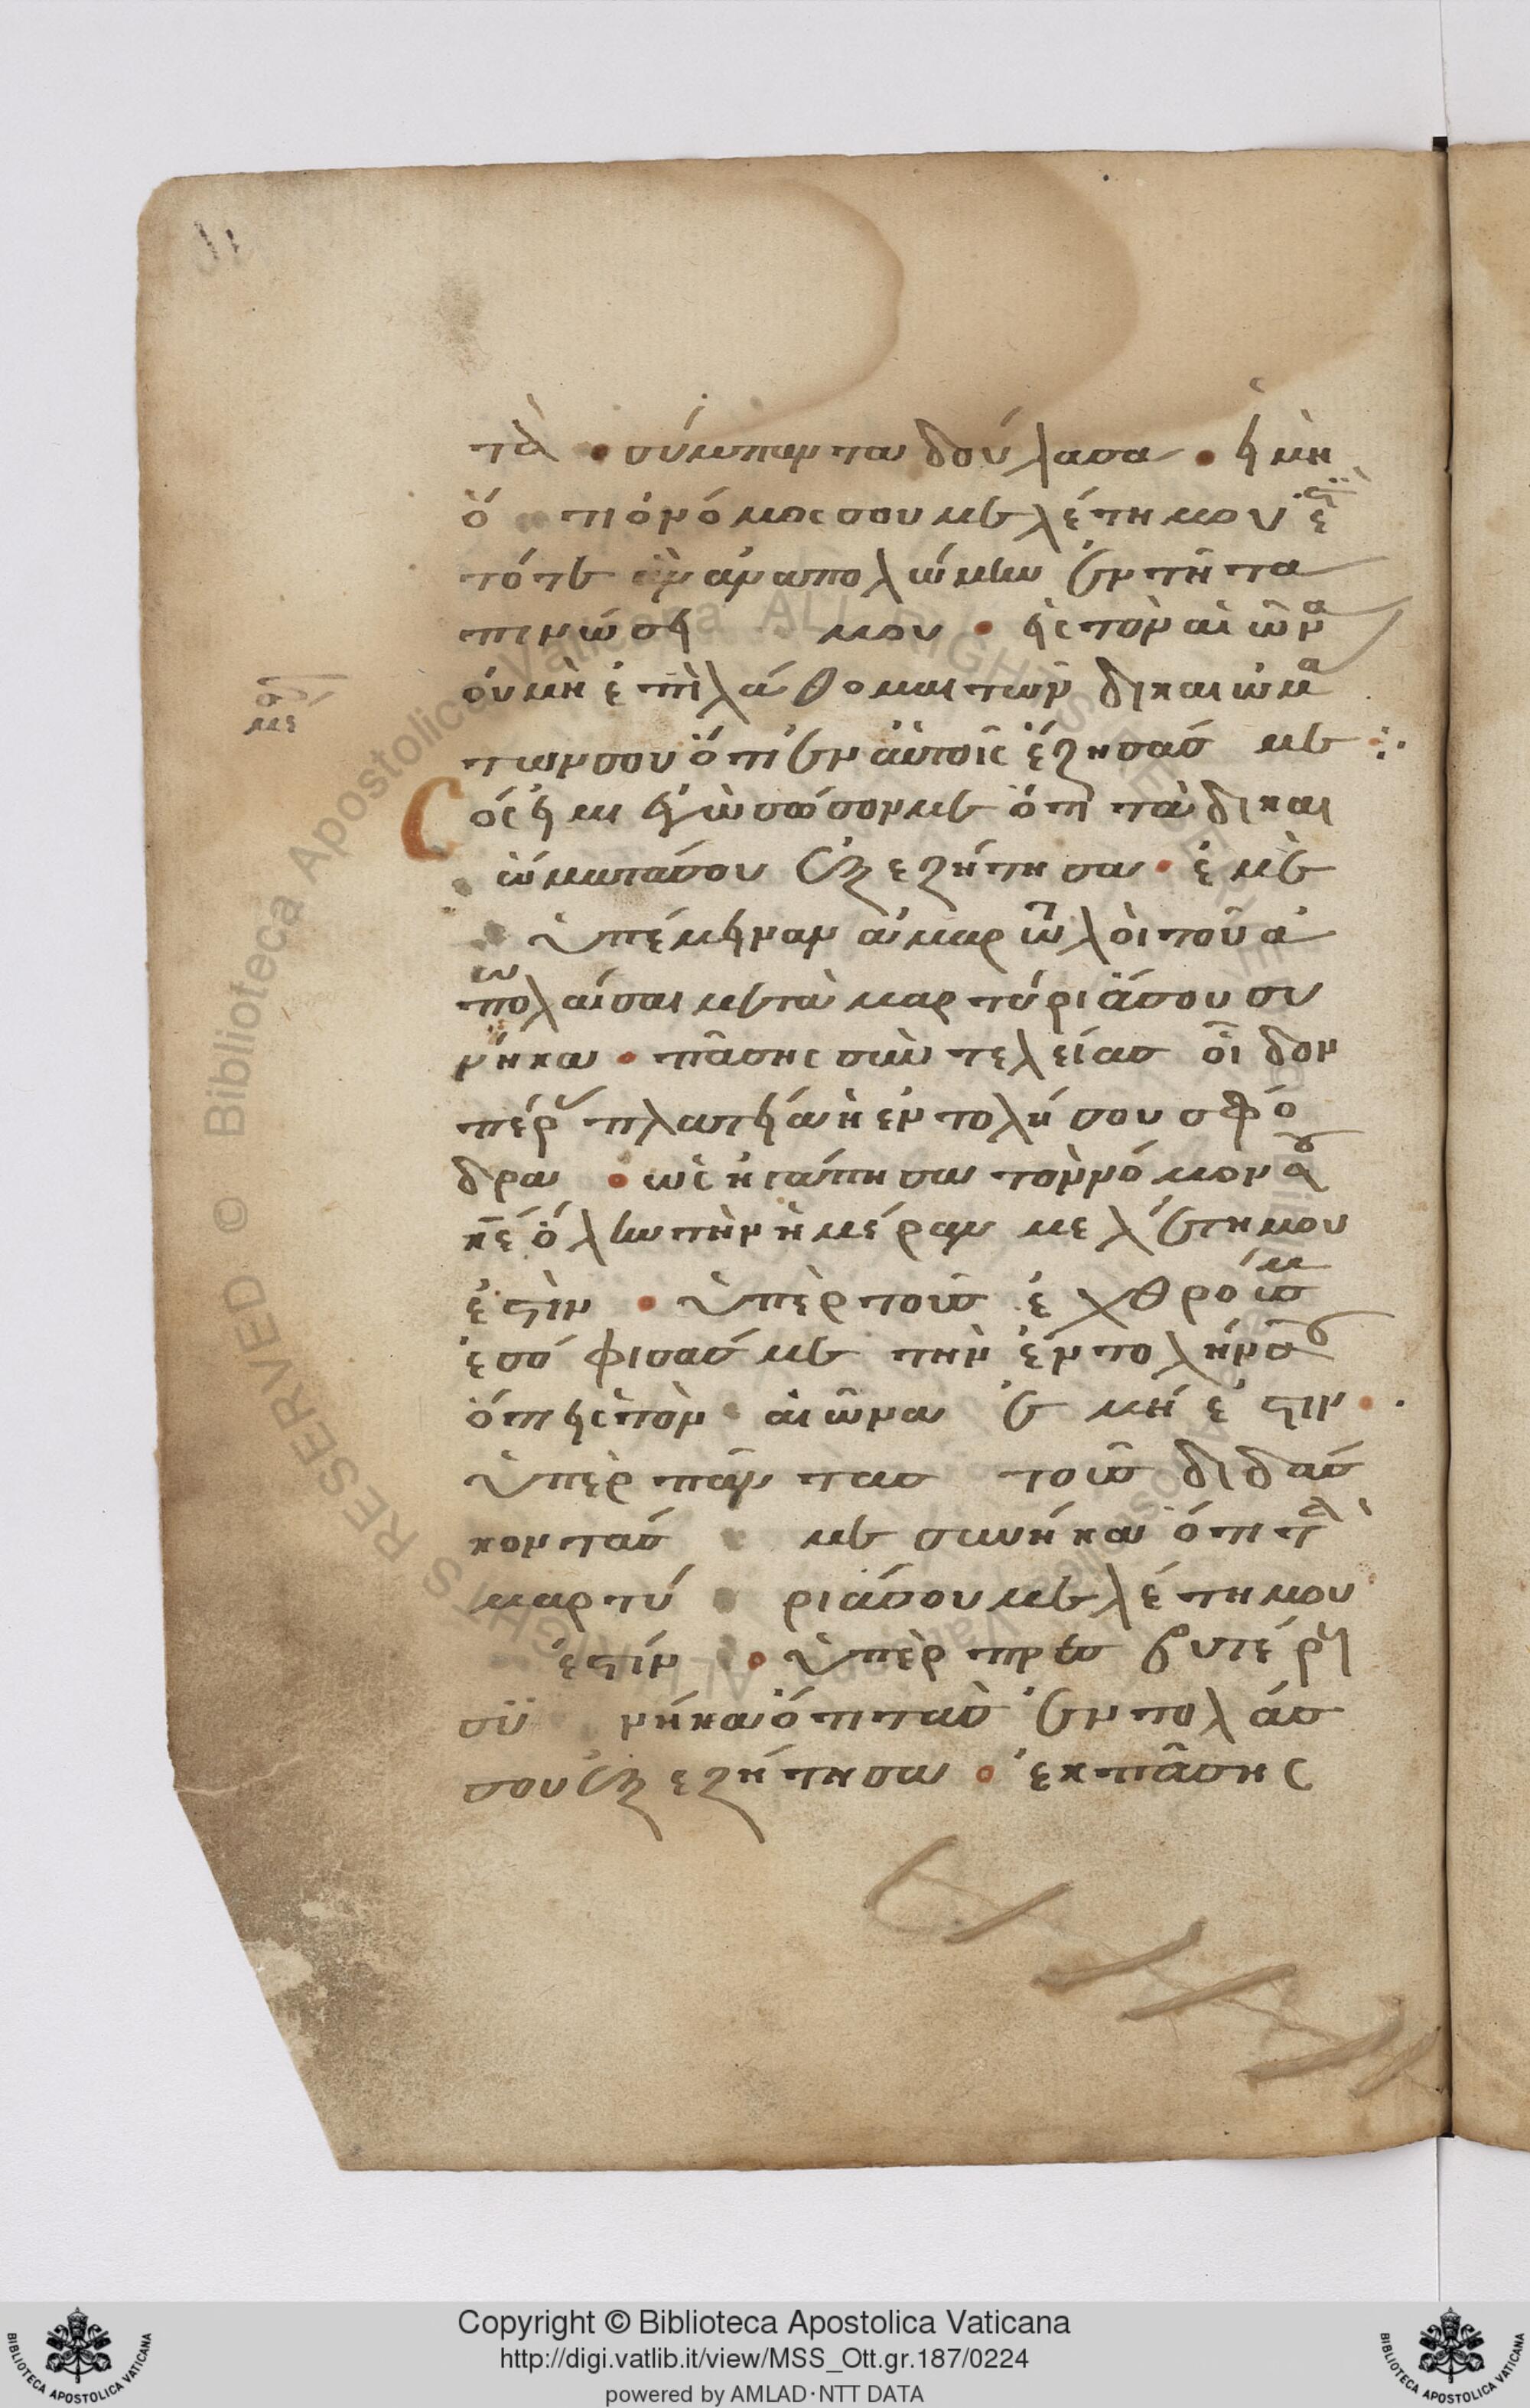 τὰ • σύμπαντα δοῦλα σὰ • εἰ μὴ
ὅ τι ὁ νόμος σου μελέτη μου ἐστὶ
τότε ἂν ἀπολώμην ἐν τῆ τα
πινώσει μου • εἰς τὸν αἰῶνα
οὐ μὴ ἐπιλάθομαι τῶν δικαιωμά
των σου ὅτι ἐν αὐτοῖς ἔζησάς με
Σός εἰμι ἐγὼ σῶσόν με ὅτι τὰ δικαι
ώματά σου ἐξεζήτησα • ἐμὲ
ὑπέμειναν ἁμαρτωλοὶ τοῦ ἀ
πολαίσαι με τὰ μαρτύριά σου συ
νῆκα • πάσης συντελείας οἶδον
πέρας πλατεῖα ἡ ἐντολή σου σφό
δρα • ὡς ἠγάπησα τὸν νόμον σου
κε ὅλην τὴν ἡμέραν μελέτη μου
ἐστὶν • ὑπὲρ τοὺς ἐχθρούς μου
ἐσόφισάς με τὴν ἐντολήν σου
ὅτι εἰς τὸν αἰῶνα ἐμή ἐστιν •
ὑπὲρ πάντας τοὺς διδάσ
κοντάς με συνῆκα ὅτι τὰ
μαρτύριά σου μελέτη μου
ἐστίν • ὑπὲρ πρεσβυτέρους
συνῆκα ὅτι τὰς ἐντολάς
σου ἐξεζήτησα • ἐκ πάσης
Copyright © Biblioteca Apostolica Vaticana
http://digi.vatlib.it/view/MSS_Ott.gr.187/0224
powered by AMLAD·NTT DATA